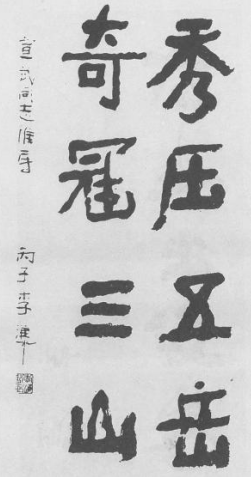 秀压五岳
奇冠三山
同志雅属
丙子 李準